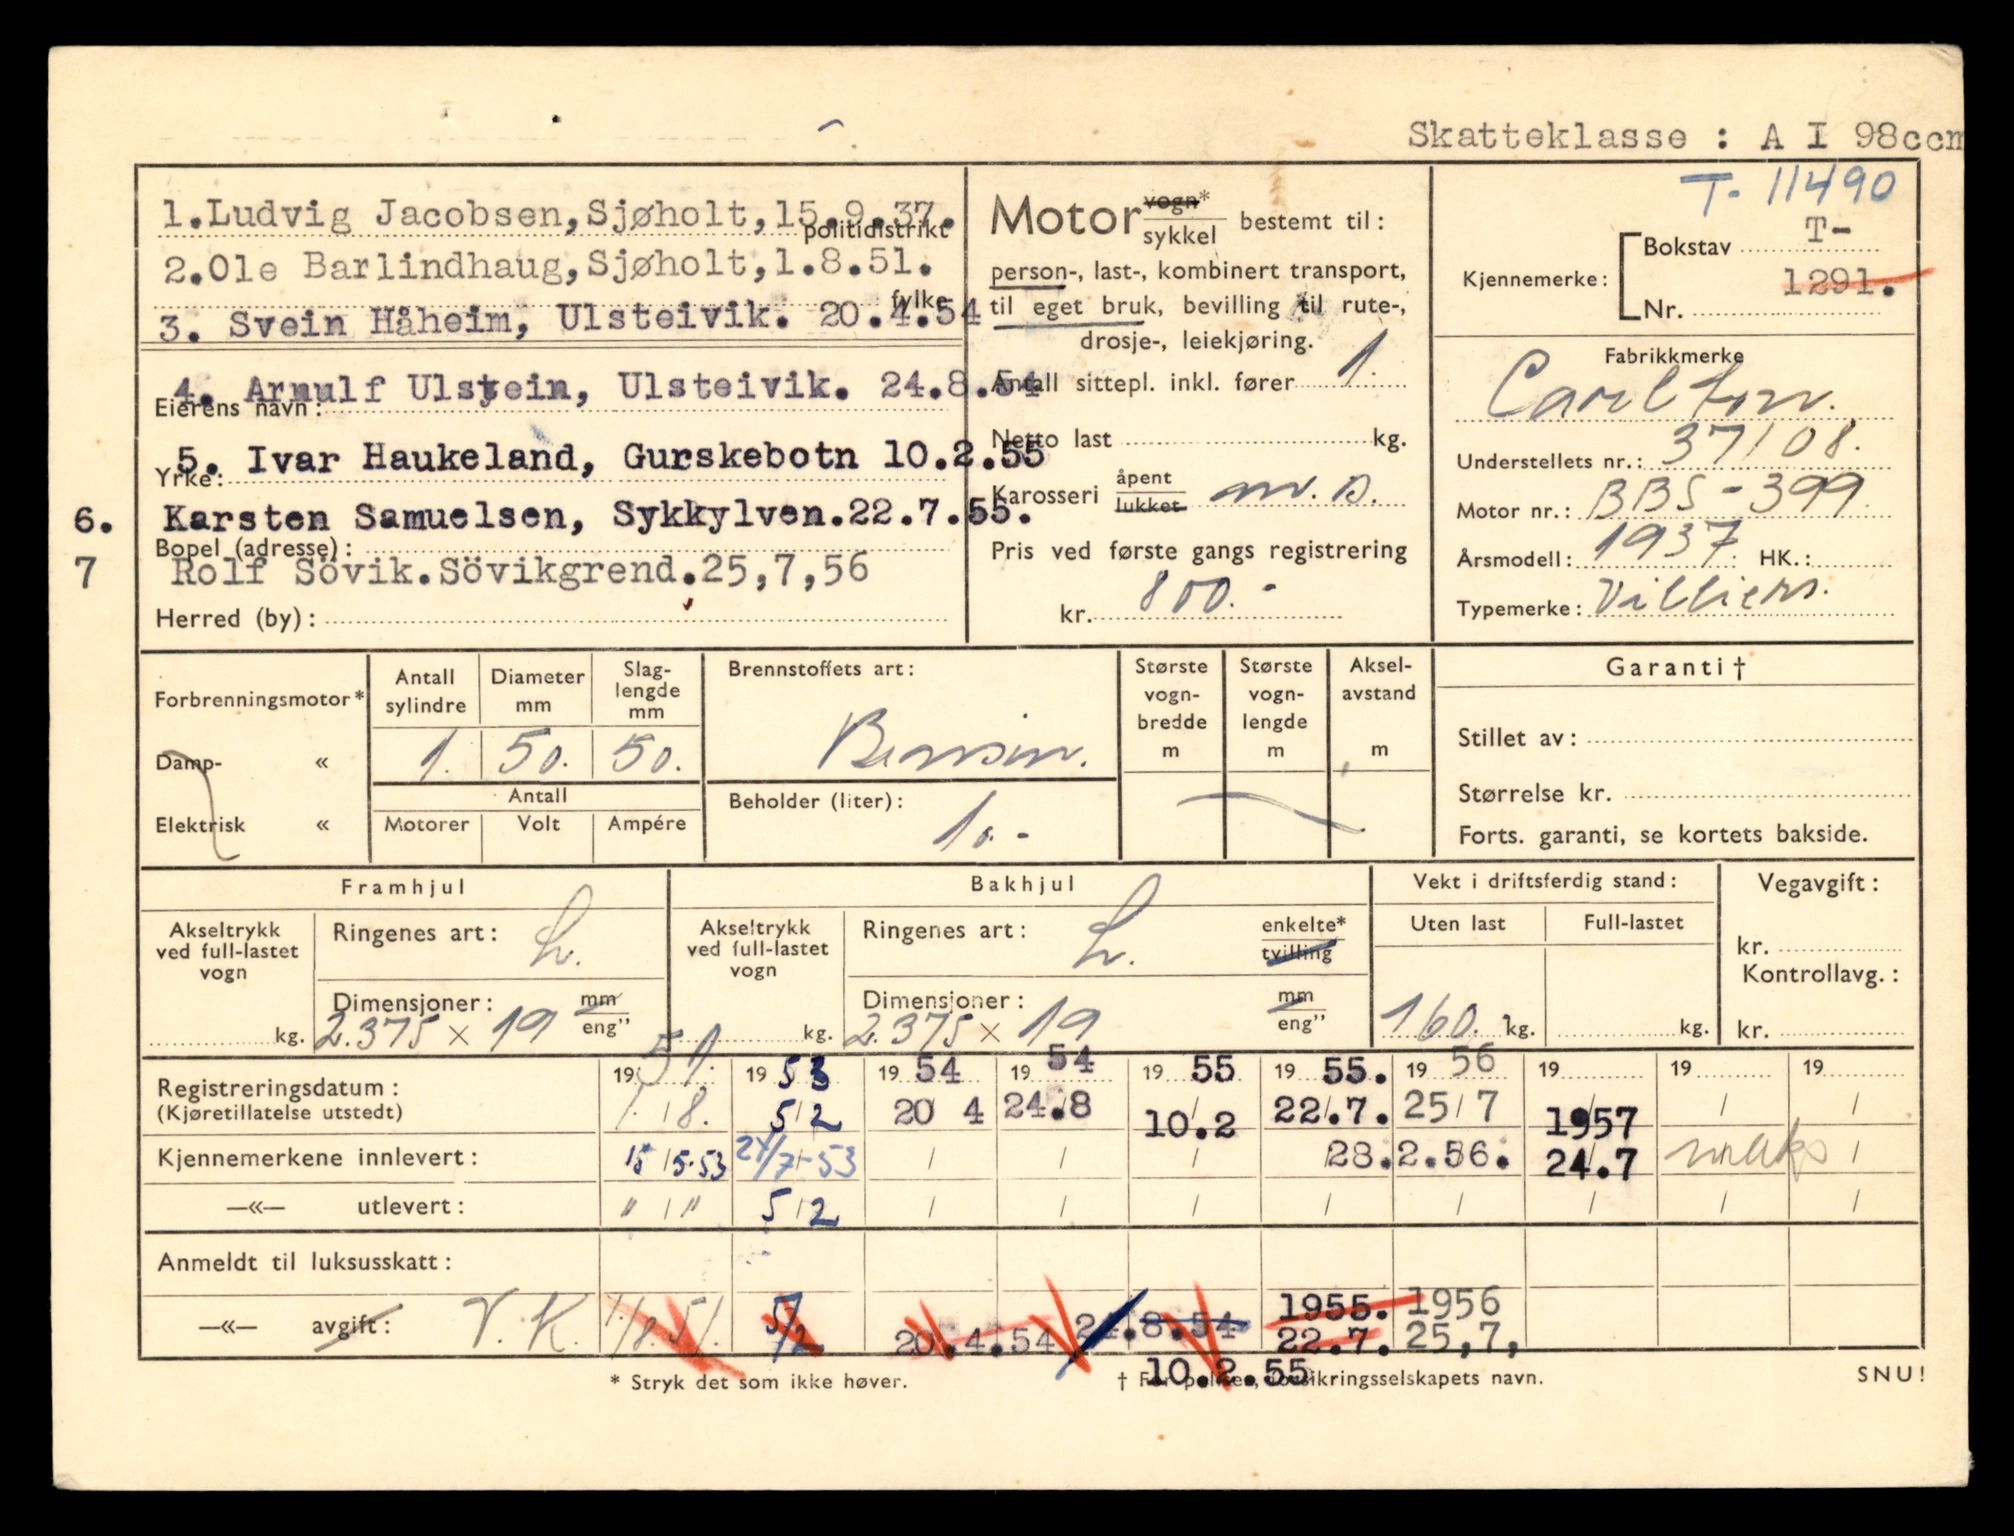 Skatteklasse : A I 98ccm
1.Ludvig Jacobsen,Sjøholt,15.9.37.
politidistrikt
2.Ole Barlindhaug,Sjøholt,1.8.51.
fylke
3. Svein Håheim, Ulsteivik. 20.4.54
4. Arnulf Ulstein, Ulsteivik. 24.8.54
Eierens navn:
5. Ivar Haukeland, Gurskebotn 10.2.55
Yrke:
6. Karsten Samuelsen, Sykkylven.22.7.55.
Bopel (adresse):
7 Rolf Sövik.Sövikgrend.25,7,56
Herred (by):
Motor vogn* sykkel bestemt til:
person-, last-, kombinert transport,
til eget bruk, bevilling til rute-,
drosje-, leiekjøring.
Antall sittepl. inkl. fører 1.
Netto last kg.
Karosseri åpent lukket m.s.
Pris ved første gangs registrering
kr. 800.-
T- 11490
Kjennemerke: Bokstav T-
Nr. 1291.
Fabrikkmerke
Carlton.
Understellets nr.: 37108.
Motor nr.: BBS-399
Årsmodell: 1937 HK.:
Typemerke: Villiers.
Forbrenningsmotor*
Damp- «
Elektrisk «
Antall sylindre 1.
Diameter mm 50.
Slag-lengde mm 50.
Antall
Motorer Volt Ampére
Brennstoffets art:
Bensin.
Beholder (liter):
10.-
Største vogn-bredde m
Største vogn-lengde m
Aksel-avstand m
Garanti †
Stillet av:
Størrelse kr.
Forts. garanti, se kortets bakside.
Framhjul
Akseltrykk ved full-lastet vogn
kg.
Ringenes art: L.
Dimensjoner: mm eng”
2.375 × 19
Bakhjul
Akseltrykk ved full-lastet vogn
kg.
Ringenes art: L. enkelte* tvilling
Dimensjoner: mm eng”
2.375 × 19
Vekt i driftsferdig stand:
Uten last Full-lastet
160. kg. kg.
Vegavgift:
kr.
Kontrollavg.:
kr.
Registreringsdatum: 19 51. 19 53 19 54 19 54 19 55 19 55. 19 56 19 19 19
(Kjøretillatelse utstedt) 1/8. 5/2 20 4 24.8 10.2 22.7. 25/7 1957
Kjennemerkene innlevert: 15/5-53 24/7-53 28.2.56. 24.7 vraka
—«— utlevert: " / " 5/2
Anmeldt til luksusskatt:
—«— avgift: V.K. 1/8.51. 5/2 20.4.54 24.8.54 1955. 1956
22.7. 25,7,
10.2.55
* Stryk det som ikke høver.
† For polisen, forsikringsselskapets navn.
SNU!